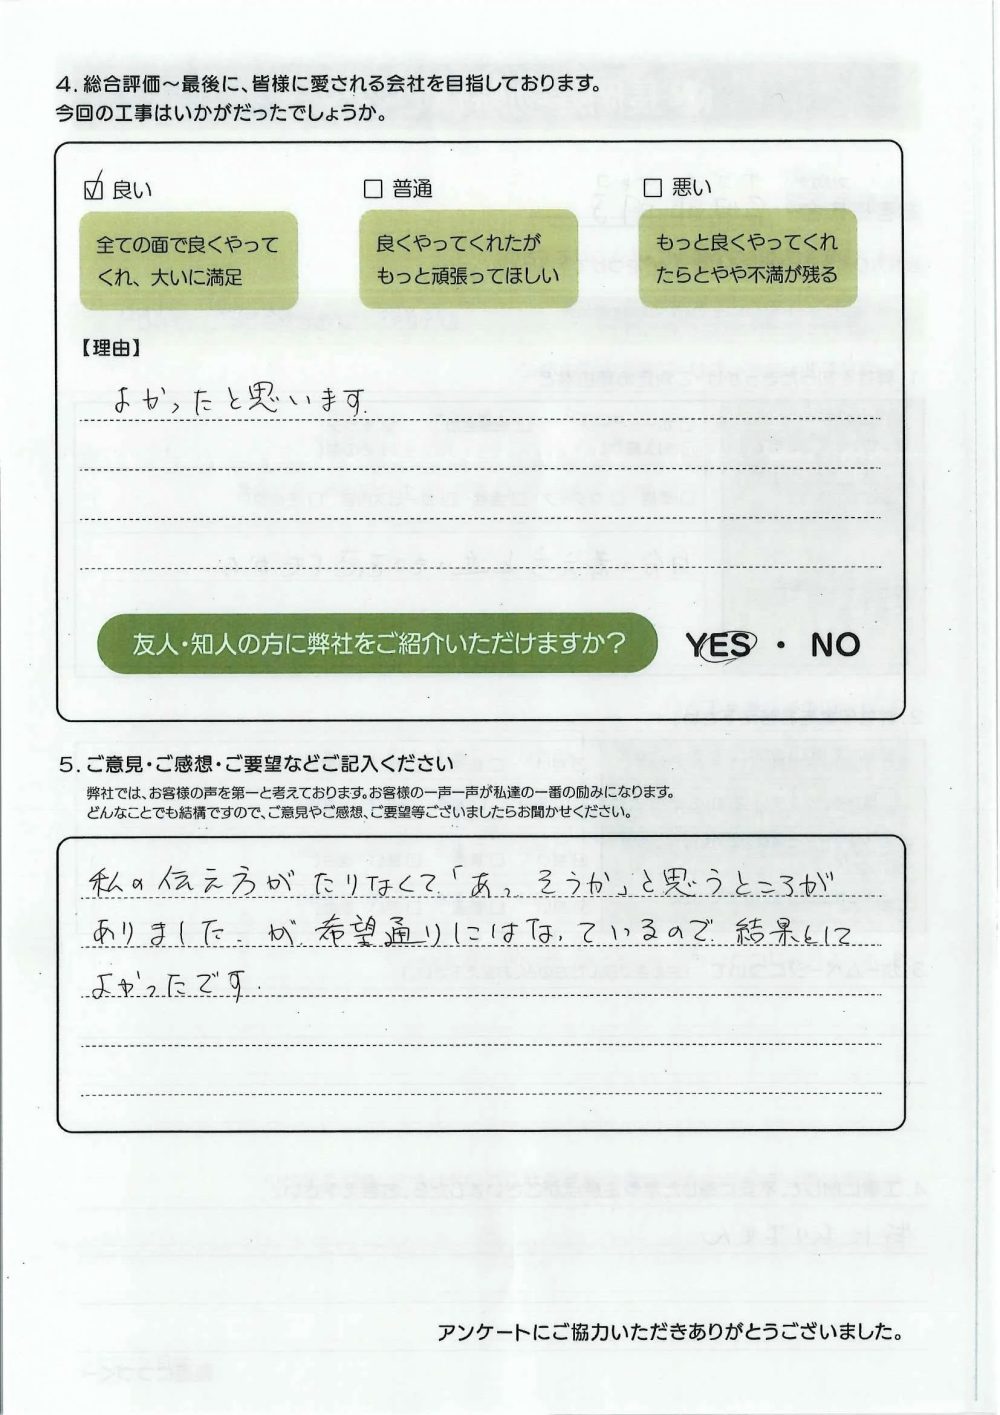 4. 総合評価～最後に、皆様に愛される会社を目指しております。
今回の工事はいかがだったでしょうか。
☑ 良い
□ 普通
□ 悪い
全ての面で良くやって
くれ、大いに満足
良くやってくれたが
もっと頑張ってほしい
もっと良くやってくれ
たらとやや不満が残る
【理由】
よかったと思います.
友人・知人の方に弊社をご紹介いただけますか？ YES ・ NO
5. ご意見・ご感想・ご要望などご記入ください
弊社では、お客様の声を第一と考えております。お客様の一声一声が私達の一番の励みになります。
どんなことでも結構ですので、ご意見やご感想、ご要望等ございましたらお聞かせください。
私の伝え方がたりなくて「あっそうか」と思うところが
ありました. が. 希望通りにはなっているので. 結果として
よかったです.
アンケートにご協力いただきありがとうございました。